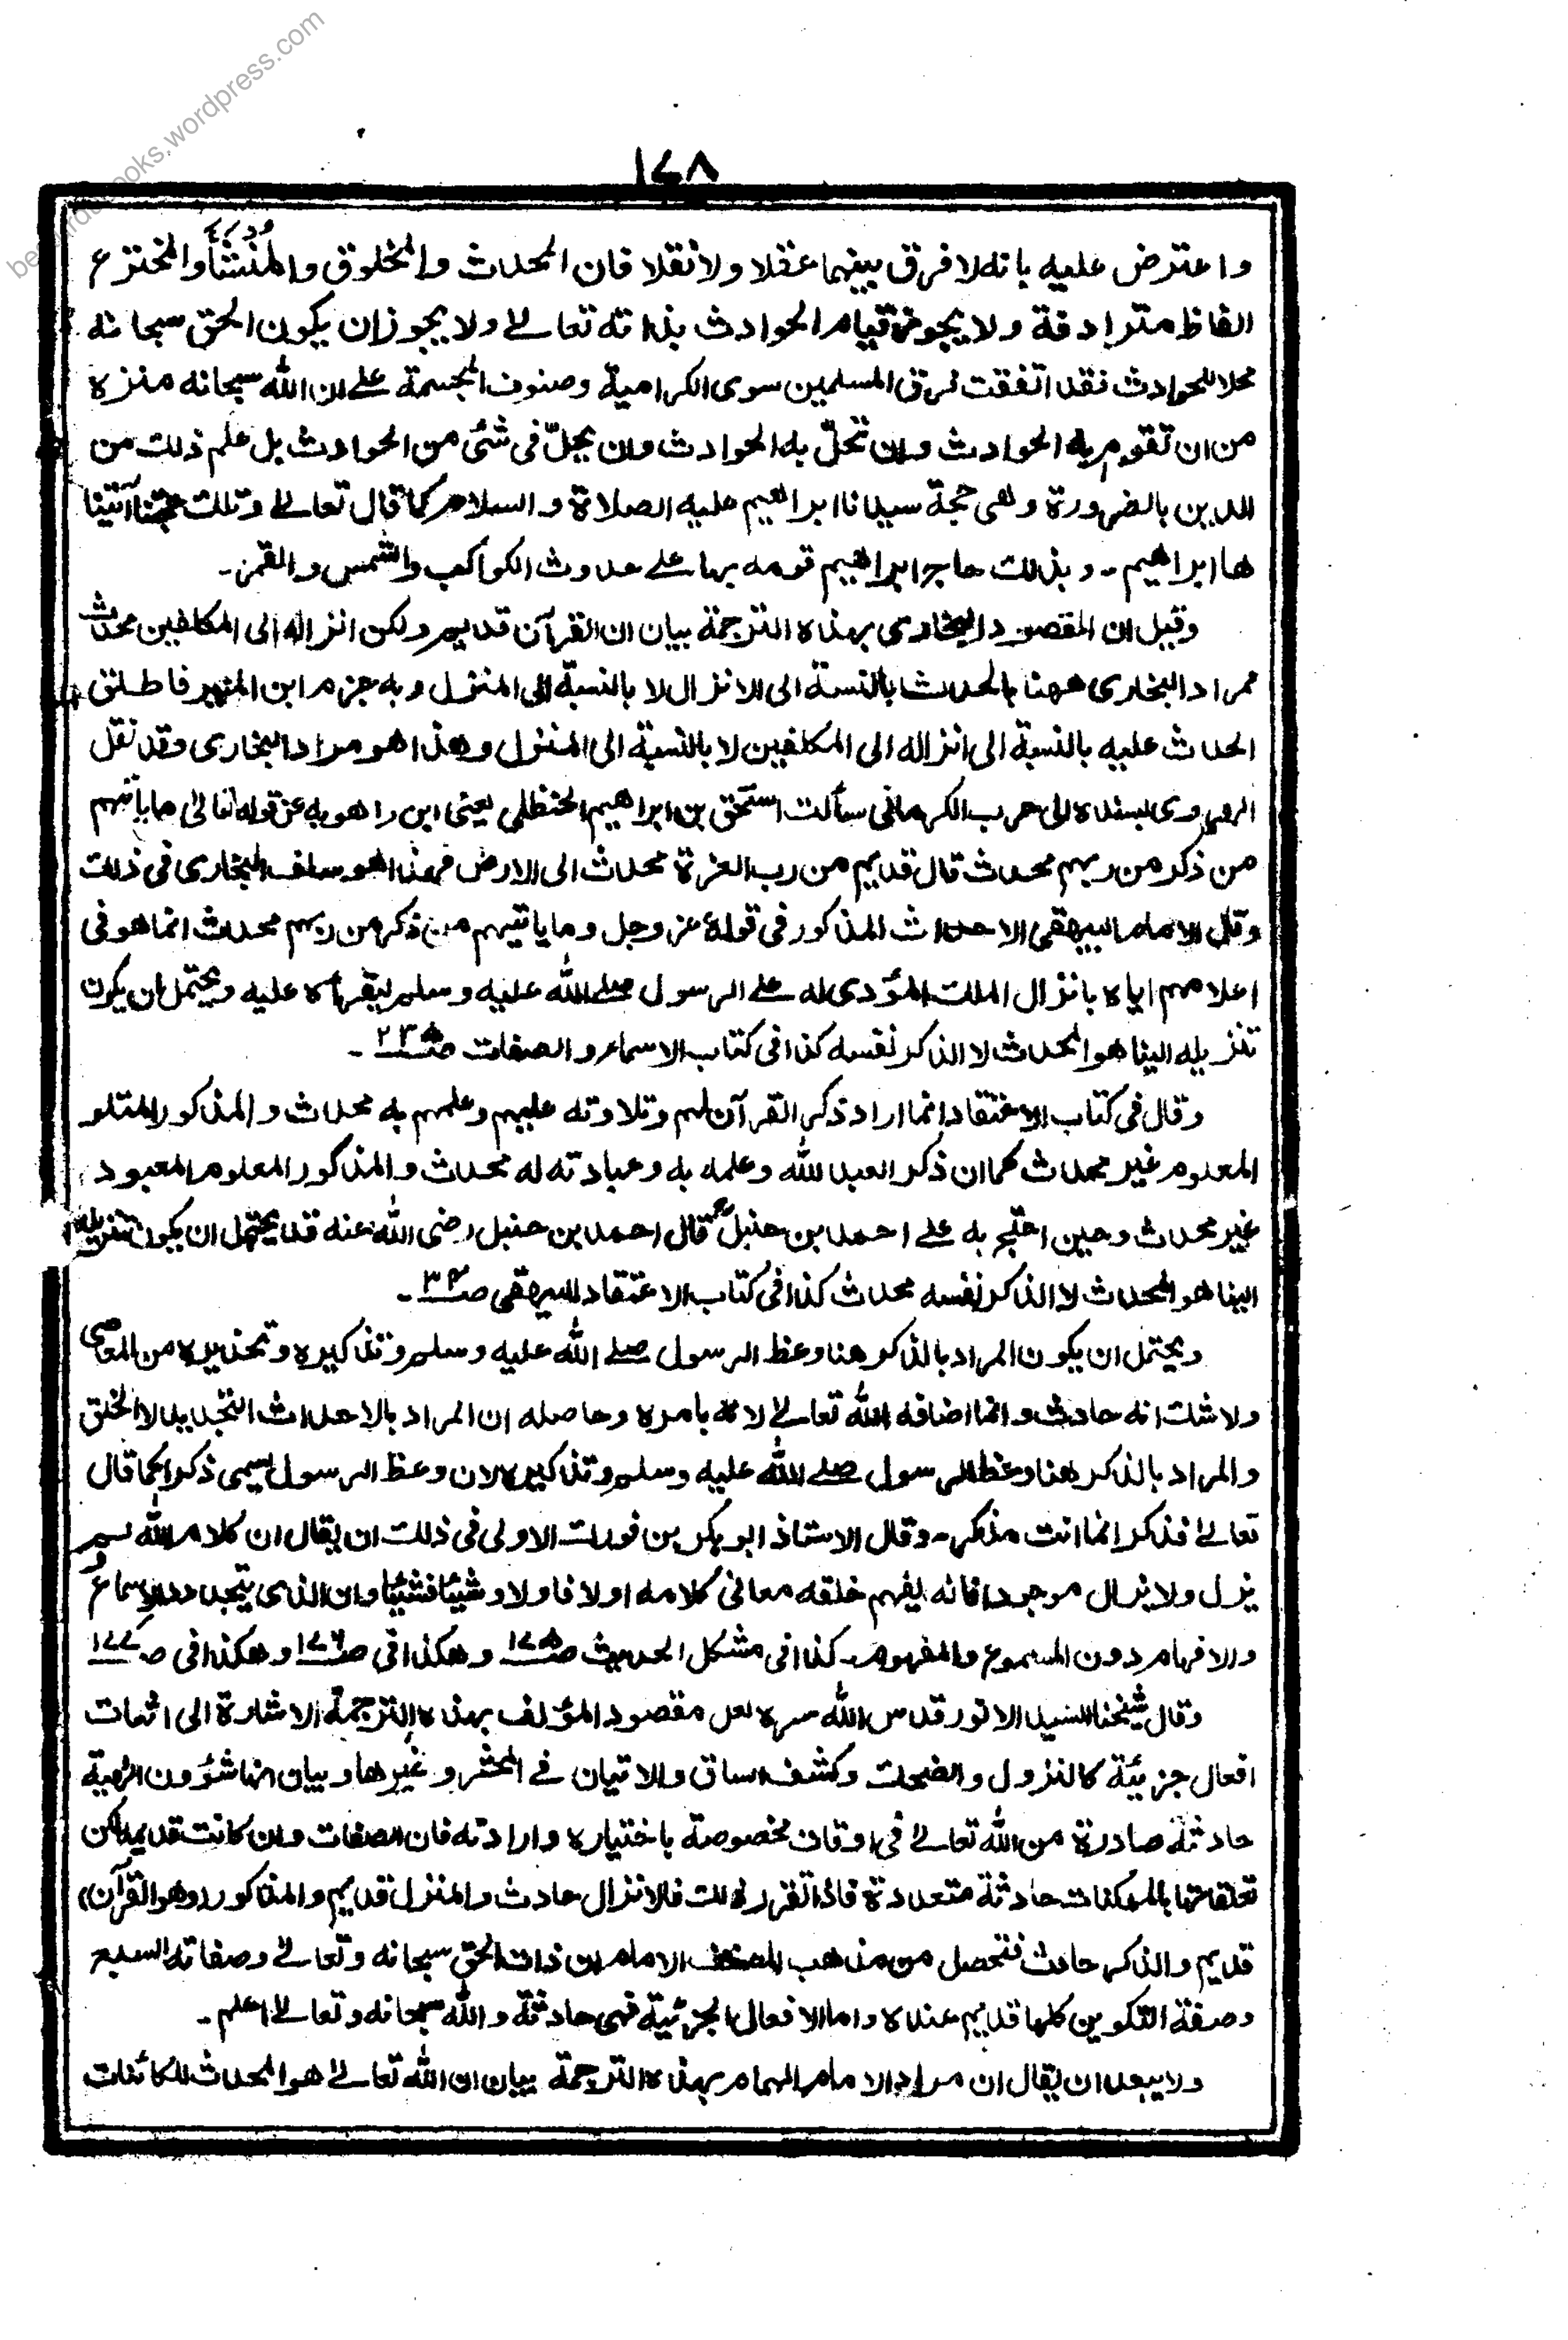 besturdubooks.wordpress.com
۱۷۸
واعترض عليه بانه لا فرق بينهما عقلا ولا نقلا فان المحدث والمخلوق والمنشأ والمخترع
الفاظ مترادفة ولا يجوز قيام الحوادث بذاته تعالى ولا يجوز ان يكون الحق سبحانه
محلا للحوادث فقد اتفقت فرق المسلمين سوى الكرامية وصنوف المجسمة على ان الله سبحانه منزه
من ان تقوم به الحوادث وان تحلّ به الحوادث وان يحلّ فى شئ من الحوادث بل علم ذلك من
الدين بالضرورة وهى حجة سيدنا ابراهيم عليه الصلاة والسلام كما قال تعالى وتلك حجتنا آتينا
ها ابراهيم - وبذلك حاج ابراهيم قومه بها على حدوث الكواكب والشمس والقمر -
وقيل ان المقصود البخارى بهذه الترجمة بيان ان القرآن قديم ولكن انزاله الى المكلفين محدث
فمراد البخارى ههنا بالمحدث بالنسبة الى الانزال لا بالنسبة الى المنزل وبه جزم ابن المنير فاطلق
الحدث عليه بالنسبة الى انزاله الى المكلفين لا بالنسبة الى المنزل وهذا هو مراد البخارى وقد نقل
الهروى بسنده الى حرب الكرمانى سألت اسحٰق بن ابراهيم الحنظلى يعنى ابن راهويه عن قوله تعالى ما يأتيهم
من ذكر من ربهم محدث قال قديم من رب العزة محدث الى الارض فهذا هو سلف البخارى فى ذلك
وقال الامام البيهقى الاحداث المذكور فى قوله عز وجل وما ياتيهم من ذكر من ربهم محدث انما هو فى
اعلامهم اياه بانزال الملك المؤدى له على الرسول صلى الله عليه وسلم ليقرأه عليه ويحتمل ان يكون
تنزيله الينا هو المحدث لا الذكر نفسه كذا فى كتاب الاسماء والصفات صـ۲۳۵ -
وقال فى كتاب الاعتقاد انما اراد ذكر القرآن لهم وتلاوته عليهم وعلمهم به محدث والمذكور المتلو
المعلوم غير محدث كما ان ذكر العبد لله وعلمه به وعبادته له محدث والمذكور المعلوم المعبود
غير محدث وحين احتج به على احمد بن حنبلؒ قال احمد بن حنبل رضى الله عنه قد يحتمل ان يكون تنزيله
الينا هو المحدث لا الذكر نفسه محدث كذا فى كتاب الاعتقاد للبيهقى صـ۳۴ -
ويحتمل ان يكون المراد بالذكر هنا وعظ الرسول صلى الله عليه وسلم وتذكيره وتحذيره من المعاصى
ولا شك انه حادث وانما اضافه الله تعالى لانه بامره وحاصله ان المراد بالاحداث التجديد لا الخلق
والمراد بالذكر هنا وعظ الرسول صلى الله عليه وسلم وتذكيره لان وعظ الرسول يسمى ذكرا كما قال
تعالى فذكر انما انت مذكر - وقال الاستاذ ابو بكر بن فورك الاولى فى ذلك ان يقال ان كلام الله لم
يزل ولا يزال موجودا فانه يفهم خلقه معانى كلامه اولا فاولا وشيئا فشيئا وان الذى يتجدد الاسماع
والافهام دون المسموع والمفهوم - كذا فى مشكل الحديث صـ۱۷۵ وهكذا فى صـ۱۷۶ وهكذا فى صـ۱۷۷
وقال شيخنا السيد الانور قدس الله سره لعل مقصود المؤلف بهذه الترجمة الاشارة الى اثبات
افعال جزئية كالنزول والضحك وكشف الساق والاتيان فى المحشر وغيرها وبيان انها شؤون الهية
حادثة صادرة من الله تعالى فى اوقات مخصوصة باختياره وارادته فان الصفات وان كانت قديمة لكن
تعلقاتها بالممكنات حادثة متعددة فاذا تقرر ذلك فالانزال حادث والمنزل قديم والمذكور (وهو القرآن)
قديم والذكر حادث فتحصل من مذهب المصنف الامام ان ذات الحق سبحانه وتعالى وصفاته السبع
وصفة التكوين كلها قديم عنده واما الافعال الجزئية فهى حادثة والله سبحانه وتعالى اعلم -
ولا يبعد ان يقال ان مراد الامام الهمام بهذه الترجمة بيان ان الله تعالى هو المحدث للكائنات